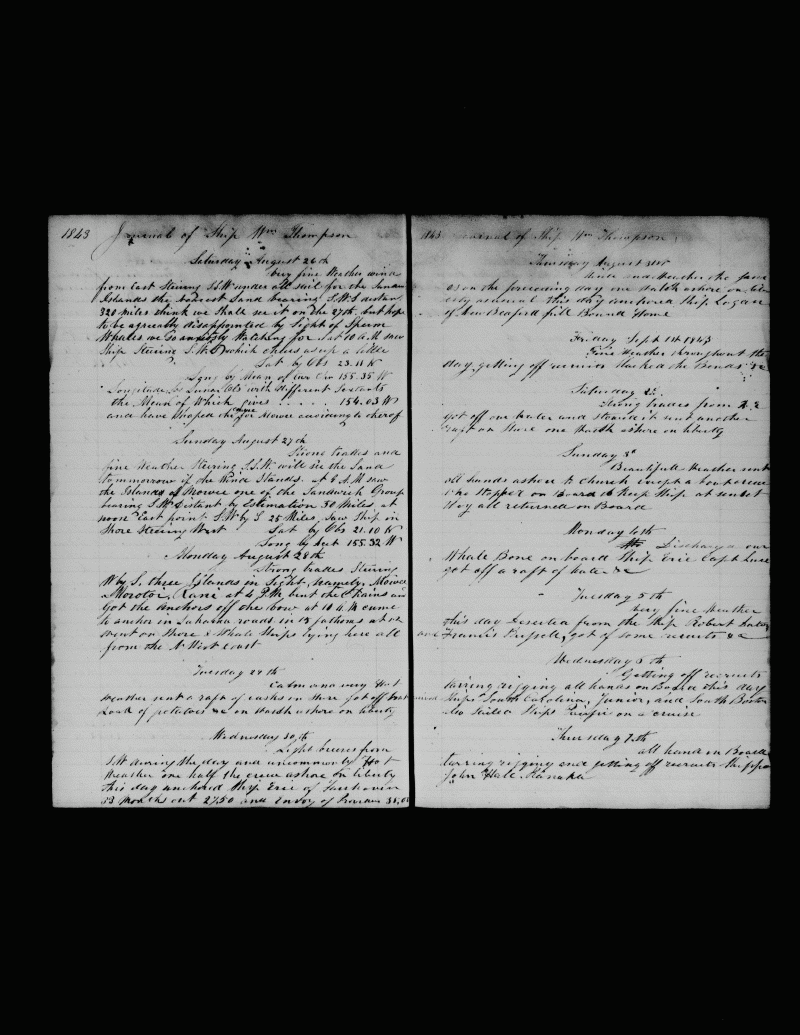 1843 Journal of Ship Wm Thompson
Saturday August 26th
very fine Weather wind
from East Steering S.S.W under all sail for the
Islands the nearest Land bearing S.W.S distant
320 miles think we shall see it on the 27th. but hope
to be agreeably disappointed by Sight of Sperm
Whales we So anxiously Watching for Lat 10 A.M saw
Ship Steering S.W. which cheers us up a little
Lat by Obs 23.11 N
Long by Mean of our Chr 155.35 W
Longitude by Lunar Obs with different Sextants
the Mean of Which gives . . . . . 154.03 W
and have Shaped the Course for Mowee according thereof
Sunday August 27th
Strong trades and
fine Weather Steering S.S.W. will see the Land
tommorrow if the Wind Stands. at 8 A.M saw
the Islands of Mowee one of the Sandwich Group
bearing S.W. distant by Estimation 30 Miles. at
noon East point S.W by S 25 Miles. Saw Ship in
Shore Steering West Lat by Obs 21.10 N
Long by 155.32 W
Monday August 28th
Strong trades Steering
W by S. three Islands in Sight, namely, Mowee
Morotoi, Ranai at 4 P.M. bent the Chains and
Got the anchors off the bow at 10 A.M came
to anchor in Lahaina roads in 15 fathoms at
went on Shore 8 Whale Ships lying here all
from the N West coast
Tuesday 29th
Calm and very Hot
weather sent a raft of casks in there got off
Load of potatoes &c on Watch ashore on liberty
Wednesday 30th
Light breeses from
S.W during the day and uncommonly Hot
Weather one half the crew ashore on liberty
this day anchord Ship Eric of Fairhaven
23 Months out 2750 and Envoy of
1843 Journal of Ship Wm Thompson
Thursday August 31st
Wind and Weather the same
as on the foreceding day one Watch ashore on
as usual this day anchored Ship Logan
of New Bedford full Bound Home
Friday Sept 1st 1843
Fine Weather throughout the
day getting off recruits Washed the Bends &c
Saturday 2
Strong trades from N.E
got off one water and stowed it sent another
raft on Shore one Watch ashore on liberty
Sunday 3d
Beautifull Weather sent
all hands ashore to church except a boatsteerer
who stopped on Board to Keep Ship at sunset
they all returned on Board
Monday 4th
Discharged our
Whale Bone on board Ship Eric Capt
got off a raft of water &c
Tuesday 5th
very fine Weather
this day Deserted from the Ship Robert
and Francis got of some recruits &c
Wednesday 6th
Getting off recruits
tarring rigging all hands on Board this day
Ships South Carolina, Junior, and South Boston
also Sailed Ships on a cruise
Thursday 7th
all hands on Board
tarring rigging and getting off recruits Shipped
John Hall Kanaka